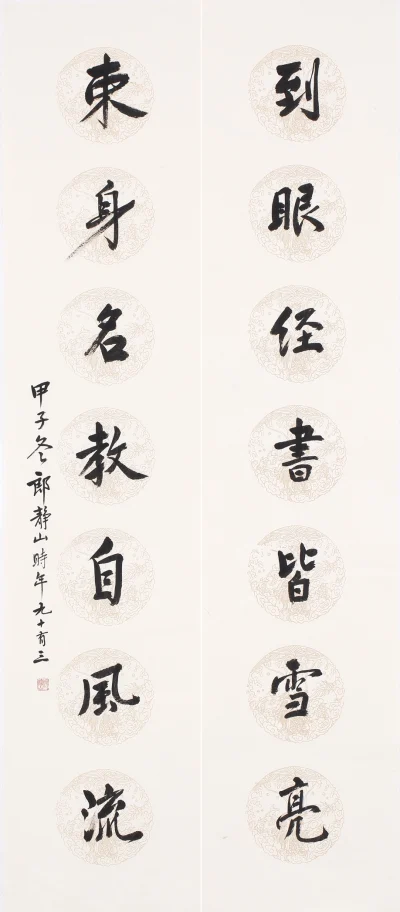 到眼经書皆雪亮
束身名教自風流
甲子冬郎靜山時年九十有三